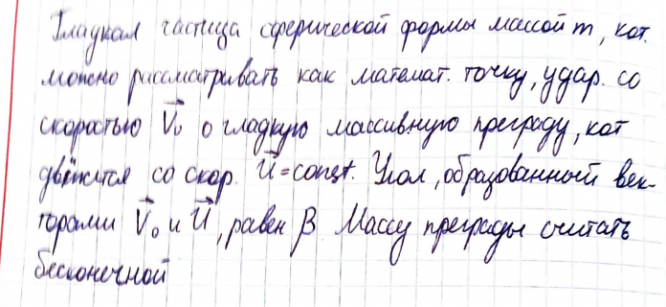 Гладкая частица сферической формы массой m, кот.
можно рассматривать как математ. точку, удар. со
скоростью V₀ о гладкую массивную преграду, кот
движется со скор. U = const. Угол, образованный век-
торами V₀ и U, равен β. Массу преграды считать
бесконечной